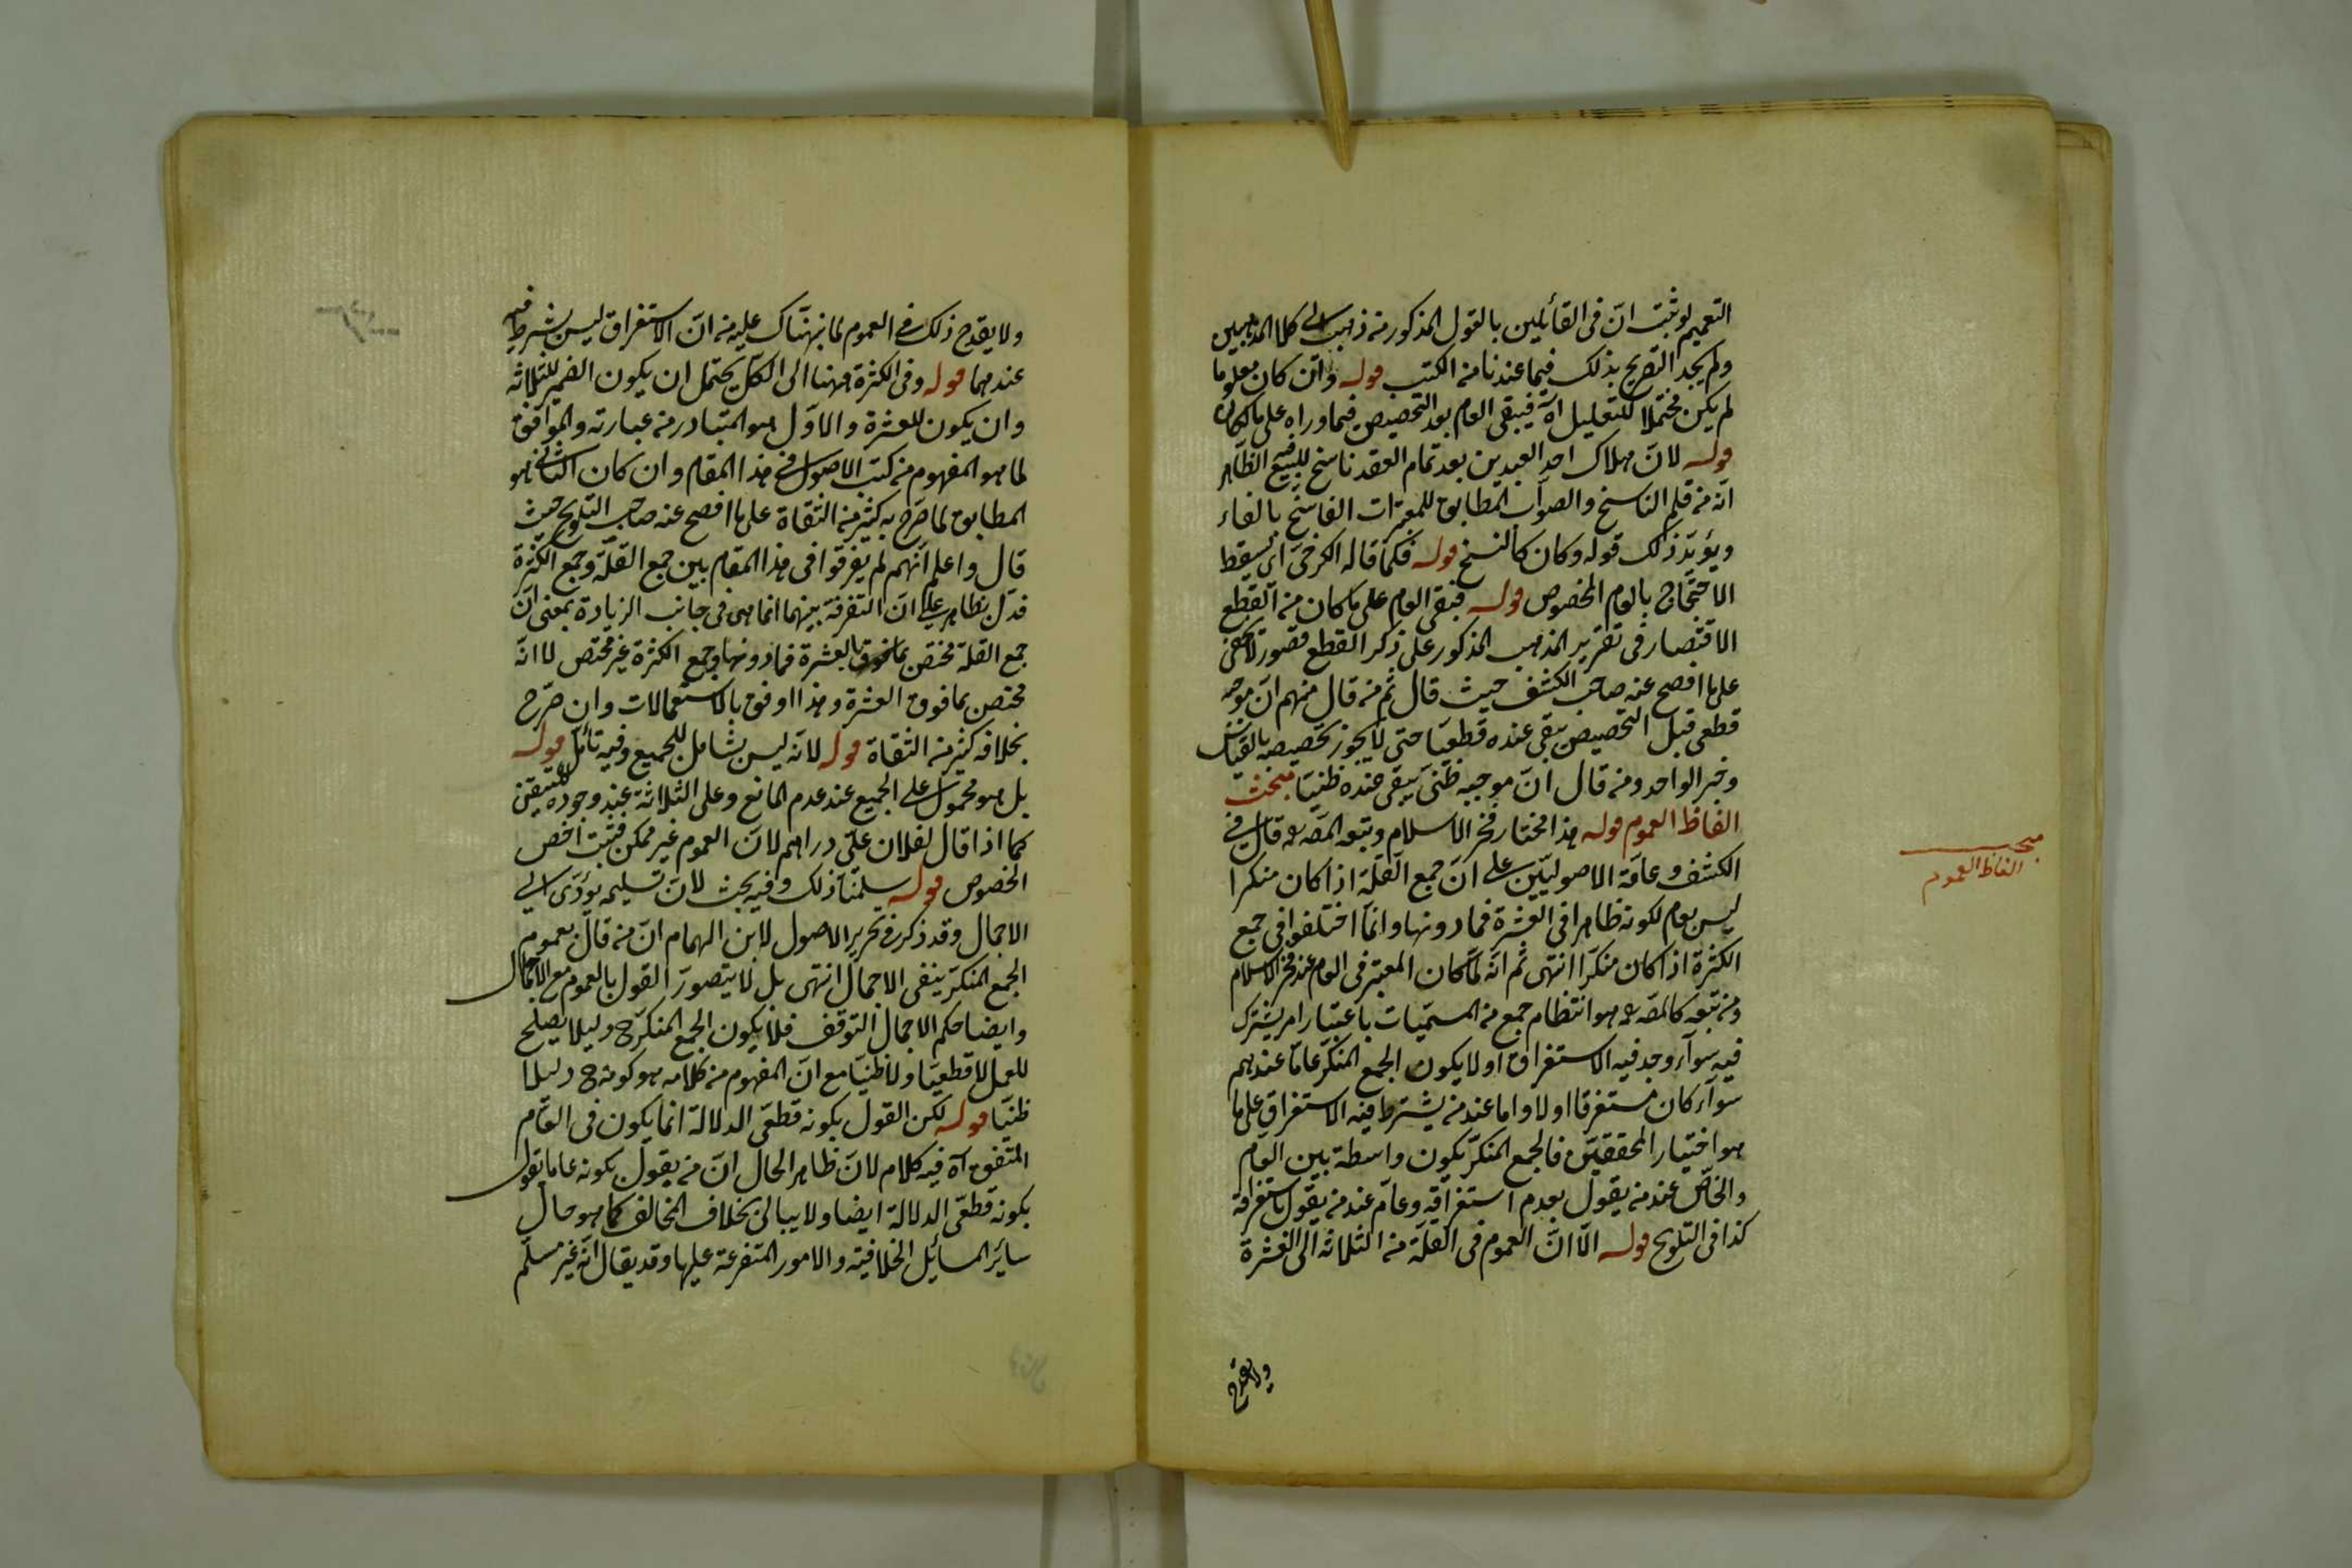 التعميم لو ثبت ان فى القائلين بالقول المذكور من ذهب الى كلا المذهبين
ولم يجد التصريح بذلك فيما عندنا من الكتب قوله وان كان معلوما
لم يكن محتملا للتعليل اه فيبقى العام بعد التخصيص فيما وراه على ما كان
قوله لان هلاك احد العبدين بعد تمام العقد ناسخ للبيع فيه الظاهر
انه من قلم الناسخ والصواب المطابق للمعتبرات الفاسخ بالفاء
ويؤيد ذلك قوله وكان كالنسخ قوله فكما قاله الكرخى اى يسقط
الاحتجاج بالعام المخصوص قوله فبقى العام على ما كان من القطع
الاقتصار فى تقرير المذهب المذكور على ذكر القطع قصور لا يخفى
على ما افصح عنه صاحب الكشف حيث قال ثم من قال منهم ان موجبه
قطعى قبل التخصيص يبقى عنده قطعيا حتى لا يجوز تخصيصه بالقياس
وخبر الواحد ومن قال ان موجبه ظنى يبقى عنده ظنيا مبحث
الفاظ العموم قوله هذا مختار فخر الاسلام وتبعه المصه قال فى
الكشف وعامة الاصوليين على ان جمع القلة اذا كان منكرا
ليس بعام لكونه ظاهرا فى العشرة فما دونها وانما اختلفوا فى جمع
الكثرة اذا كان منكرا انتهى ثم انه لما كان المعتبر فى العام عند فخر الاسلام
ومن تبعه كالمصه هو انتظام جمع من المسميات باعتبار امر يشترك
فيه سوآء وجد فيه الاستغراق اولا يكون الجمع المنكر عاما عندهم
سوآء كان مستغرقا اولا واما عند من يشترط فيه الاستغراق على ما
هو اختيار المحققين فالجمع المنكر يكون واسطة بين العام
والخاص عند من يقول بعدم استغراقه وعام عند من يقول باستغراقه
كذا فى التلويح قوله الا ان العموم فى القلة من الثلاثة الى العشرة
ولا يقدح
مبحث
الفاظ العموم
ولا يقدح ذلك فى العموم لما نبهناك عليه من ان الاستغراق ليس بشرط فيه
عندهما قوله وفى الكثرة ههنا الى الكل يحتمل ان يكون الضمير للثلاثة
وان يكون للعشرة والاول هو المتبادر من عبارته والموافق
لما هو المفهوم من كتب الاصول فى هذا المقام وان كان الثانى هو
المطابق لما صرح به كثير من الثقاة على ما افصح عنه صاحب التلويح حيث
قال واعلم انهم لم يفرقوا فى هذا المقام بين جمع القلة وجمع الكثرة
فدل بظاهره على ان التفرقة بينهما انما هى فى جانب الزيادة بمعنى ان
جمع القلة مختص بالعشرة فما دونها وجمع الكثرة غير مختص لا انه
مختص بما فوق العشرة وهذا اوفق بالاستعمالات وان صرح
بخلافه كثير من الثقاة قوله لانه ليس بشامل للجميع وفيه تأمل قوله
بل هو محمول على الجميع عند عدم المانع وعلى الثلاثة عند وجوده للتيقن
كما اذا قال لفلان على دراهم لان العموم غير ممكن فثبت اخص
الخصوص قوله سلمنا ذلك وفيه بحث لان تسليمه يؤدى الى
الاجمال وقد ذكر فى تحرير الاصول لابن الهمام ان من قال بعموم
الجمع المنكر ينفى الاجمال انتهى بل لا يتصور القول بالعموم مع الاجمال
وايضا حكم الاجمال التوقف فلا يكون الجمع المنكر ح دليلا يصلح
للعمل لا قطعيا ولا ظنيا مع ان المفهوم من كلامه هو كونه ح دليلا
ظنيا قوله لكن القول بكونه قطعى الدلالة انما يكون فى العام
المتفق اه فيه كلام لان ظاهر الحال ان من يقول بكونه عاما يقول
بكونه قطعى الدلالة ايضا ولا يبالى بخلاف المخالف كما هو حال
سائر المسائل الخلافية والامور المتفرعة عليها وقد يقال انه غير مسلم